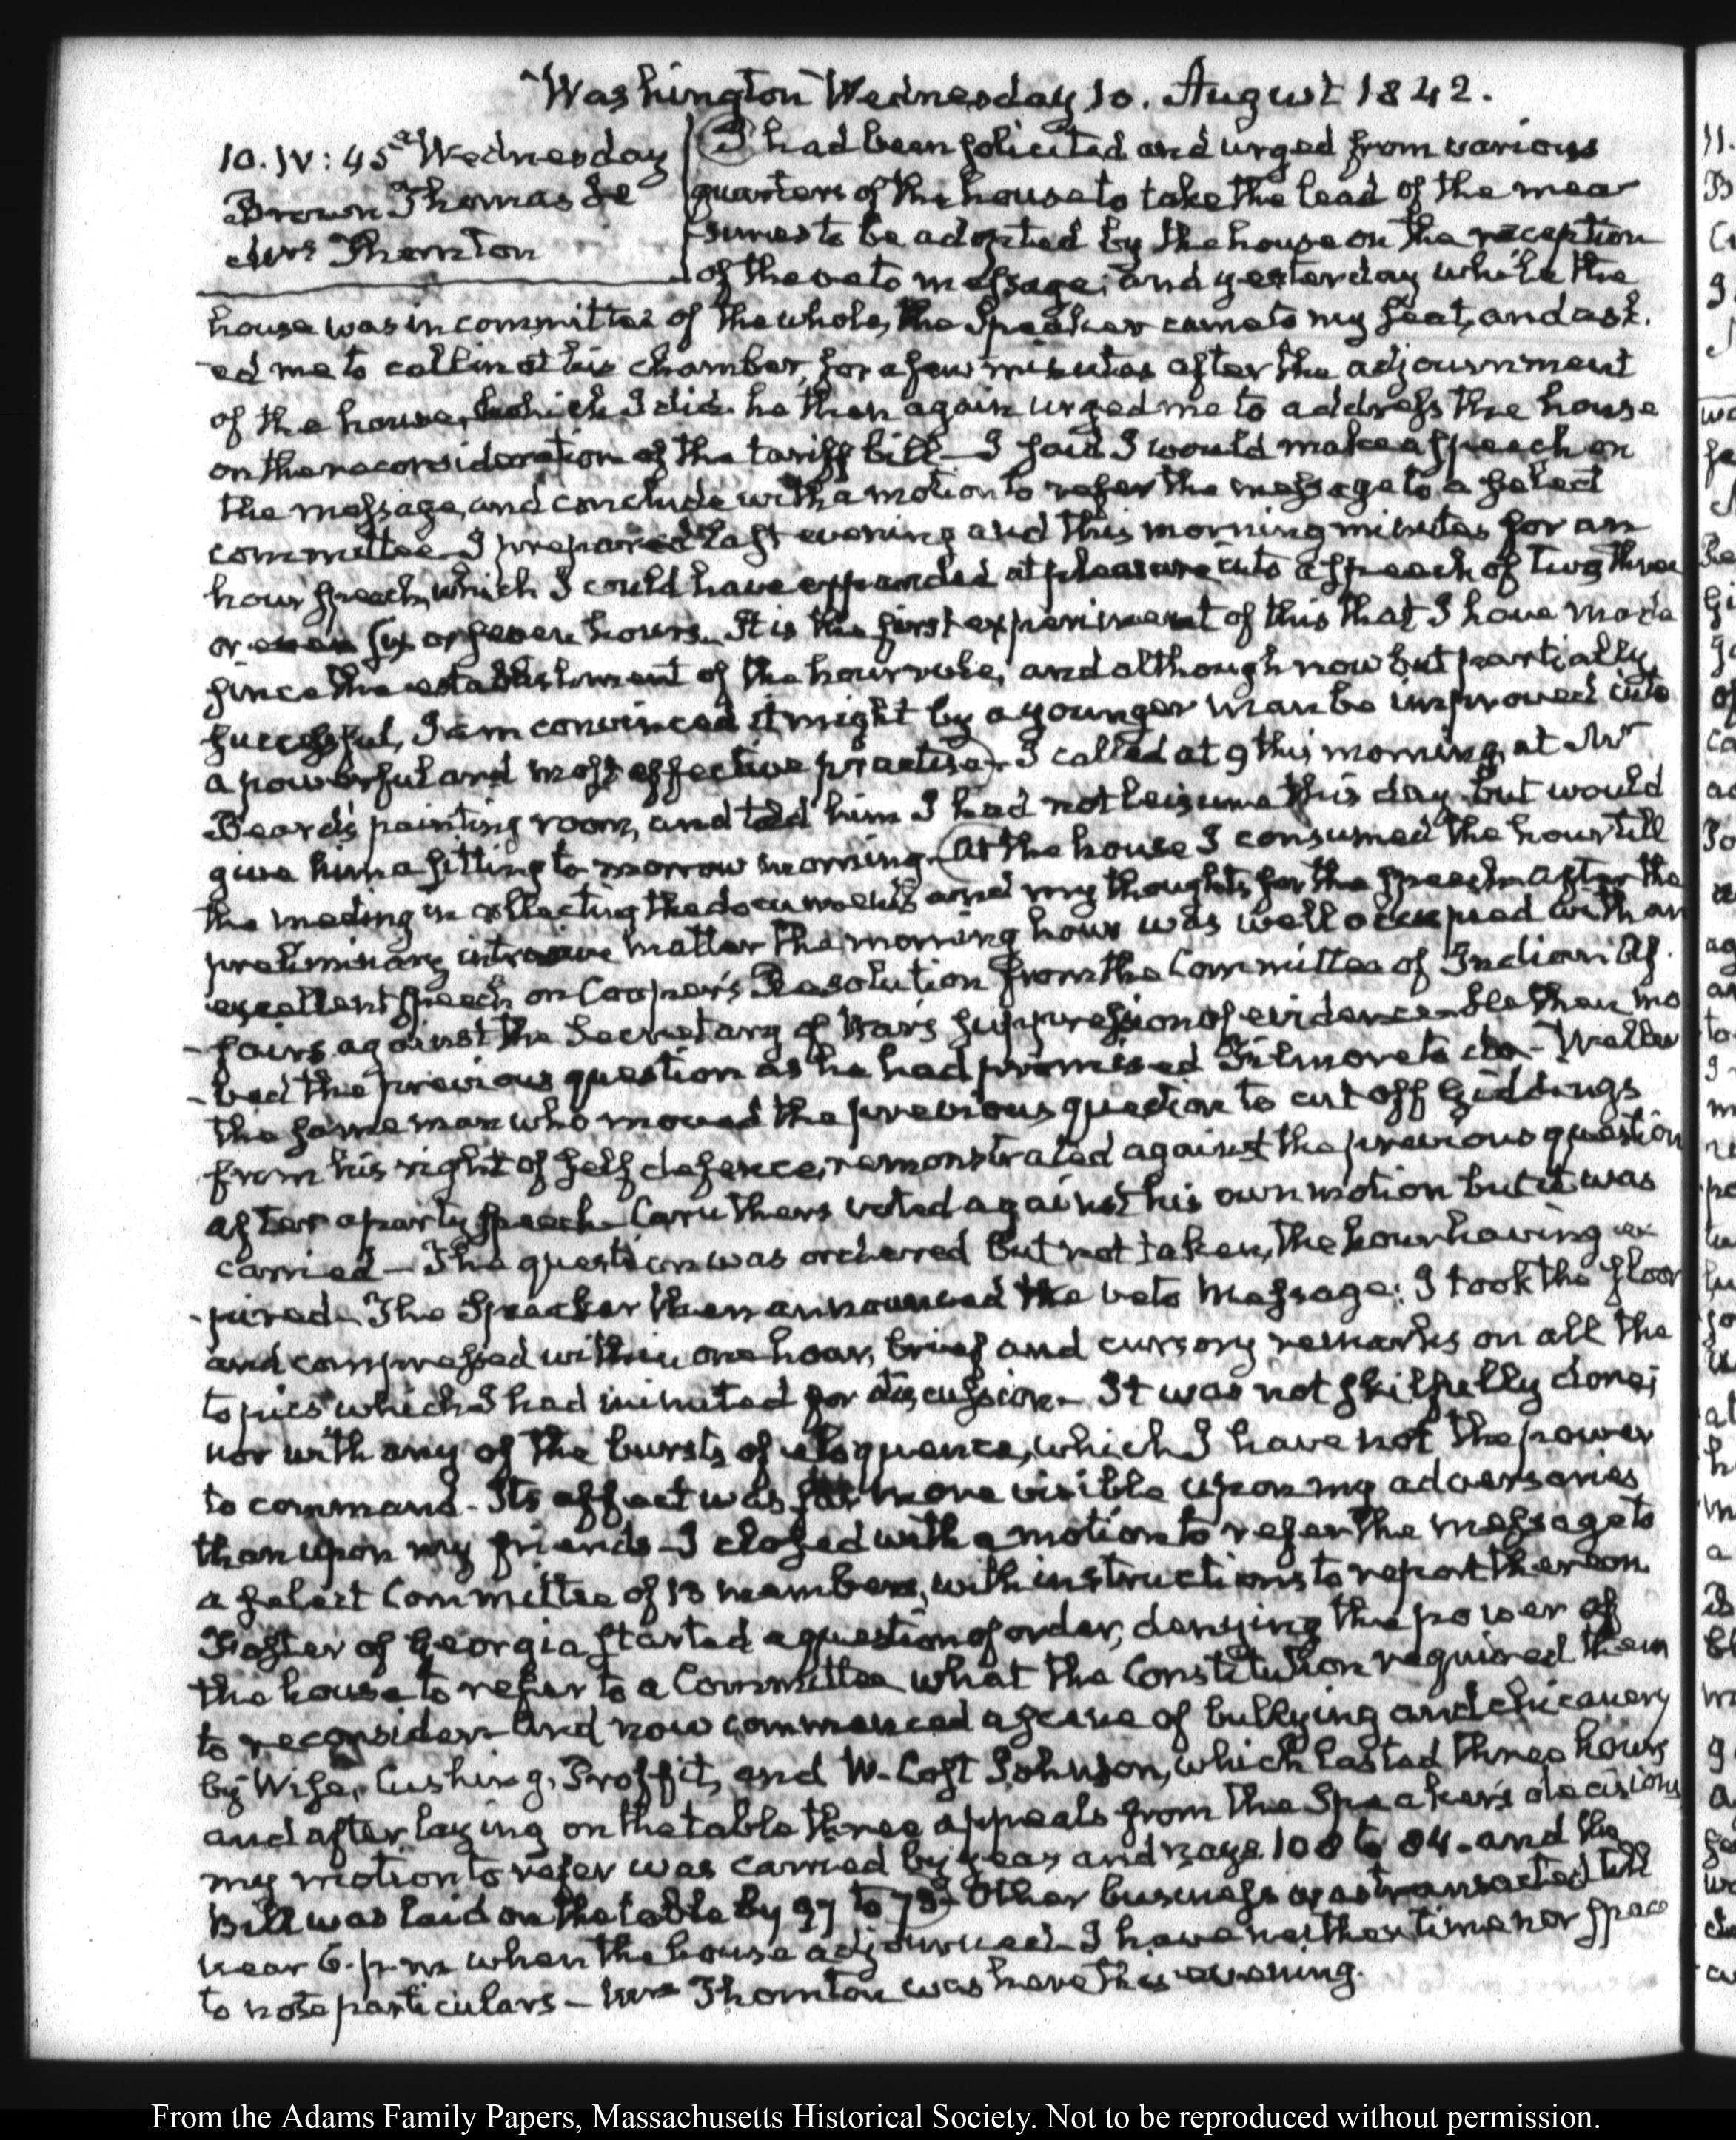 Washington Wednesday 10. August 1842.
10. IV: 45. Wednesday
Brown Thomas Jr
Mrs Thornton
I had been solicited and urged from various
quarters of the house to take the lead of the mea
sures to be adopted by the house on the reception
of the veto message; and yesterday while the
house was in committee of the whole, the Speaker came to my seat, and ask.
ed me to call in at his chamber, for a few minutes after the adjournment
of the house, which I did. he then again urged me to address the house
on the reconsideration of the tariff bill— I said I would make a speech on
the message, and conclude with a motion to refer the message to a select
committee— I prepared last evening and this morning minutes for an
hour speech, which I could have expanded at pleasure into a speech of two, three
or even six or seven hours. It is the first experiment of this that I have made
since the establishment of the hour rule, and although now but partially
successful, I am convinced it might by a younger man be improved into
a powerful and most effective practise— I called at 9 this morning, at Mr
Beard's painting room, and told him I had not leisure this day but would
give him a sitting to morrow morning— At the house I consumed the hour till
the meeting in collecting the documents and my thoughts for the speech after the
preliminary intrusive matter the morning hour was well occupied with an
excellent speech on Cooper's Resolution from the Committee of Indian Af
-fairs against the Secretary of War's suppression of evidence— He then mo
-ved the previous question as he had promised Fillmore to do— Weller
the same man who moved the previous question to cut off Giddings
from his right of self defence, remonstrated against the previous question
after a party speech— Caruthers voted against his own motion but it was
carried— The question was ordered but not taken, the hour having ex
-pired. The Speaker then announced the veto Message: I took the floor
and compressed within one hour, brief and cursory remarks on all the
topics which I had minuted for discussion— It was not skilfully done;
nor with any of the bursts of eloquence, which I have not the power
to command— Its effect was far more visible upon my adversaries
than upon my friends— I closed with a motion to refer the message to
a select Committee of 13 members, with instructions to report thereon
Foster of Georgia started a question of order, denying the power of
the house to refer to a Committee what the Constitution required them
to reconsider— And now commenced a scene of bullying and chicanery
by Wise, Cushing, Proffit, and W. Cost Johnson, which lasted three hours
and after laying on the table three appeals from the Speaker's decisions
my motion to refer was carried by yeas and nays 108 to 84— and the
Bill was laid on the table by 97 to Other business was transacted till
near 6. p.m when the house adjourned— I have neither time nor space
to note particulars— Mrs Thornton was here this evening.
From the Adams Family Papers, Massachusetts Historical Society. Not to be reproduced without permission.